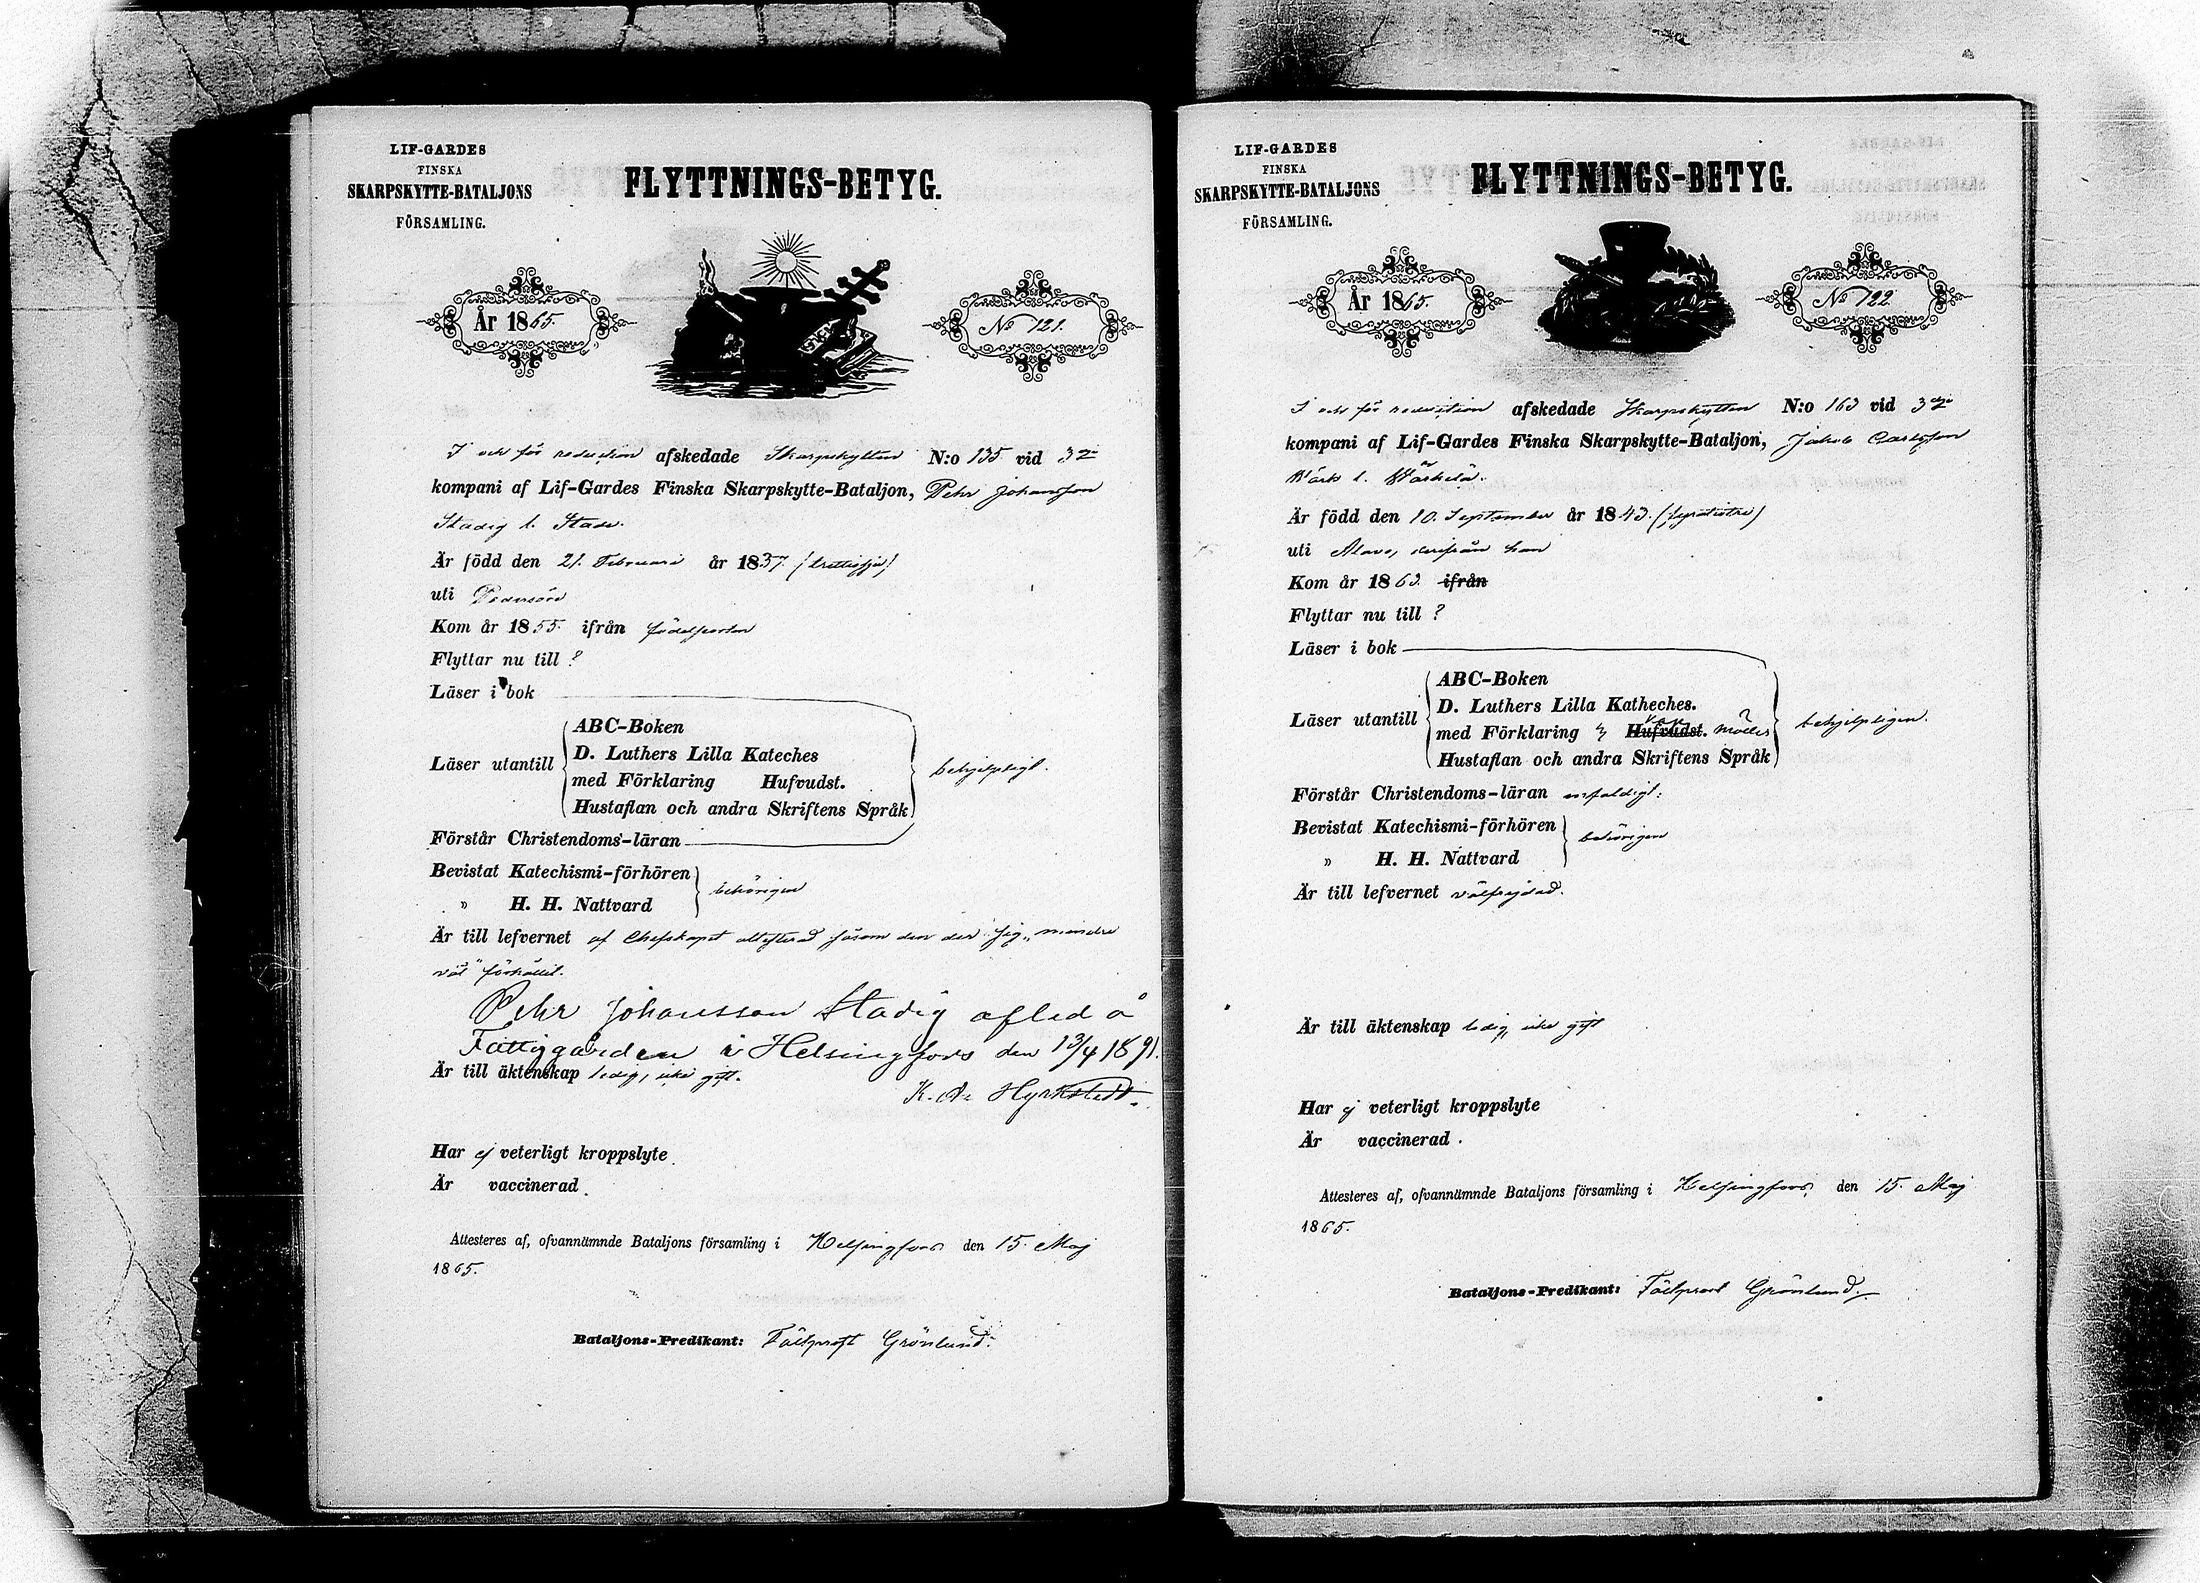 LIF-GARDES
FINSKA
SKARPSKYTTE-BATALJONS
FÖRSAMLING.
FLYTTNINGS-BETYG.
År 1865.
No 121.
I och för reduction afskedade Skarpskytten N:o 135 vid 3dje
kompani af Lif-Gardes Finska Skarpskytte-Bataljon, Pehr Johansson
Stadig l. Stade.
Är född den 21. Februari år 1837 (trettisju)
uti Pedersöre
Kom år 1855 ifrån födelseorten
Flyttar nu till ?
Läser i bok
Läser utantill
ABC-Boken
D. Luthers Lilla Kateches
med Förklaring Hufvudst.
Hustaflan och andra Skriftens Språk
behjelpligt.
Förstår Christendoms-läran
Bevistat Katechismi-förhören
" H. H. Nattvard
behörigen
Är till lefvernet af Chefskapet attesterad såsom den der sig "mindre
väl" förhållit.
Pehr Johansson Stadig afled å
Fattiggården i Helsingfors den 13/4 1891.
K. A. Hyrkstedt.
Är till äktenskap ledig, icke gift.
Har ej veterligt kroppslyte
Är vaccinerad.
Attesteres af, ofvannämnde Bataljons församling i Helsingfors den 15. Maj
1865.
Bataljons-Predikant: Fältprost Grönlund.
LIF-GARDES
FINSKA
SKARPSKYTTE-BATALJONS
FÖRSAMLING.
FLYTTNINGS-BETYG.
År 1865.
No 122
I och för reduction afskedade Skarpskytten N:o 163 vid 3dje
kompani af Lif-Gardes Finska Skarpskytte-Bataljon, Jakob Carlsson
l.
Är född den 10. September år 1843. (fyratiotre)
uti Alavo, derifrån han
Kom år 1863. ifrån
Flyttar nu till ?
Läser i bok
Läser utantill
ABC-Boken
D. Luthers Lilla Katheches.
med Förklaring Hufvudst.
Hustaflan och andra Skriftens Språk
behjelpligen.
Förstår Christendoms-läran enfaldigt:
Bevistat Katechismi-förhören
" H. H. Nattvard
behörigen
Är till lefvernet välfrejdad.
Är till äktenskap ledig, icke gift
Har ej veterligt kroppslyte
Är vaccinerad.
Attesteres af, ofvannämnde Bataljons församling i Helsingfors, den 15. Maj
1865.
Bataljons-Predikant: Fältprost Grönlund.